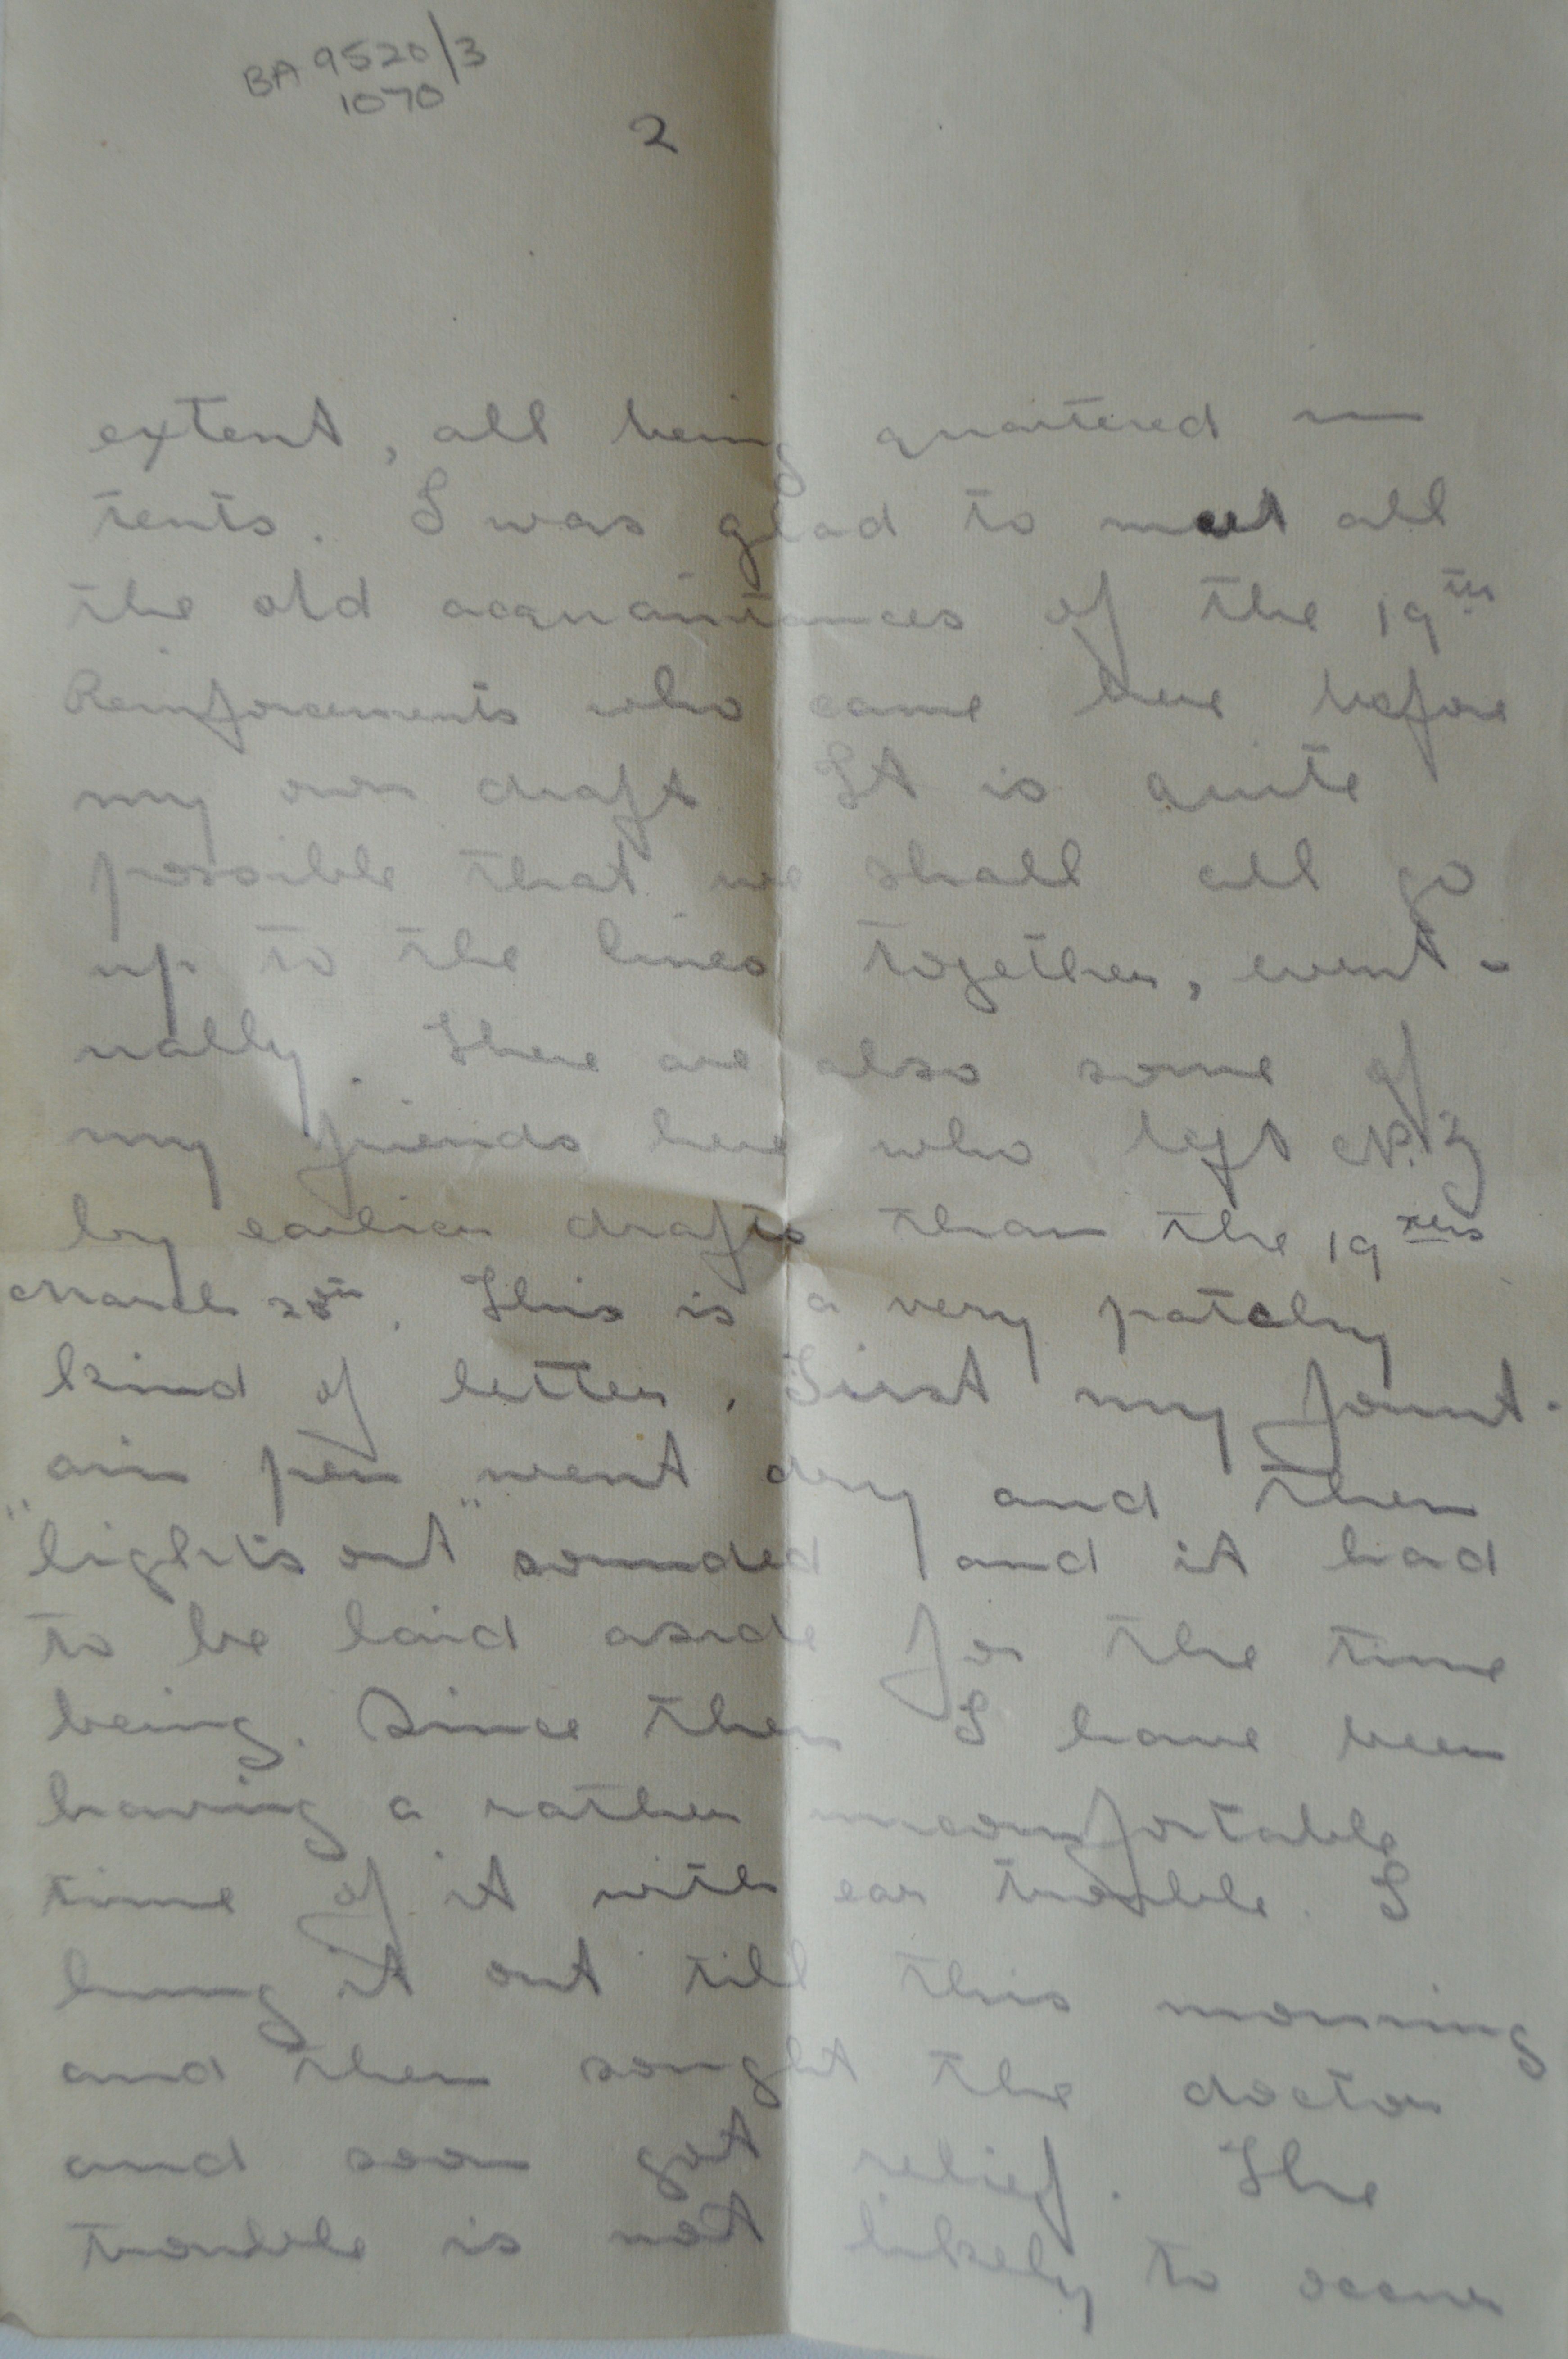 BA 9520/3
1070
2
extent, all being quartered in
tents. I was glad to meet all
the old acquaintances of the 19ths
Reinforcements who came here before
my own draft. It is quite
possible that we shall all go
up to the lines together, event-
ually. There are also some of
my friends here who left N.Z
by earlier drafts than the 19ths
March 28th. This is a very patchy
kind of letter. First my fount-
ain pen "went dry and then
"lights out" sounded and it had
to be laid aside for the time
being. Since then I have been
having a rather uncomfortable
time of it with ear trouble. I
hung it out till this morning
and then sought the doctor
and soon got relief. The
trouble is not likely to occur